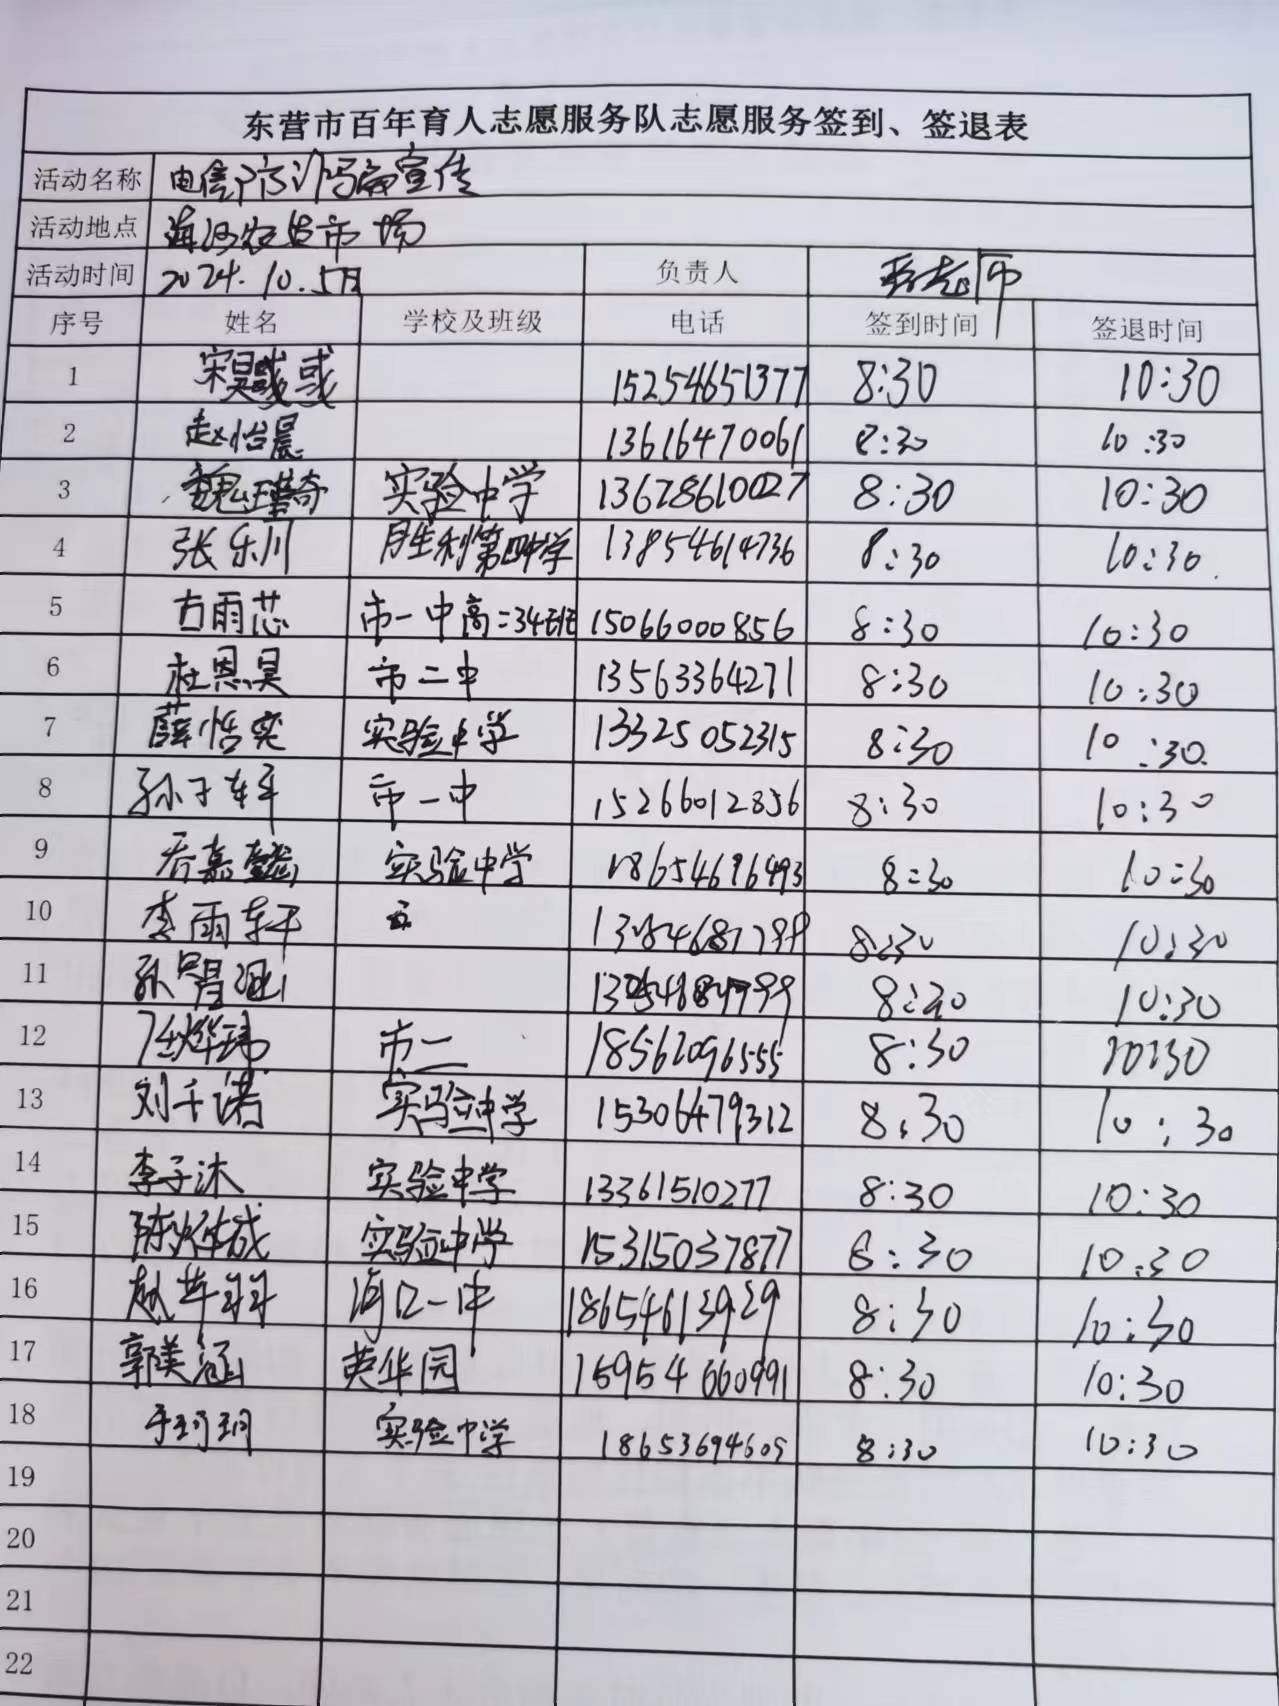 东营市百年育人志愿服务队志愿服务签到、签退表
活动名称 电信防诈骗宣传
活动地点 海河农贸市场
活动时间 2024.10.5日 负责人 老师
序号 姓名 学校及班级 电话 签到时间 签退时间
1 宋昊彧 15254651377 8:30 10:30
2 赵怡晨 13616470061 8:30 10:30
3 魏瑾琦 实验中学 13678610027 8:30 10:30
4 张乐川 胜利第四中学 13854614736 8:30 10:30
5 古雨芯 市一中高二34班 15066000856 8:30 10:30
6 杜恩昊 市二中 13563364271 8:30 10:30
7 薛恬奕 实验中学 13325052315 8:30 10:30
8 孙子轩 市一中 15266012856 8:30 10:30
9 乔嘉懿 实验中学 18654696493 8:30 10:30
10 李雨轩 8:30 10:30
11 孙 涵 8:30 10:30
12 任烨玮 市二 18562096555 8:30 10:30
13 刘千诺 实验中学 15306479312 8:30 10:30
14 李子沐 实验中学 13361510277 8:30 10:30
15 陈烨成 实验中学 15315037877 8:30 10:30
16 赵 羽 河口一中 18654613929 8:30 10:30
17 郭美涵 英华园 15954660991 8:30 10:30
18 于珂玥 实验中学 18653694605 8:30 10:30
19
20
21
22